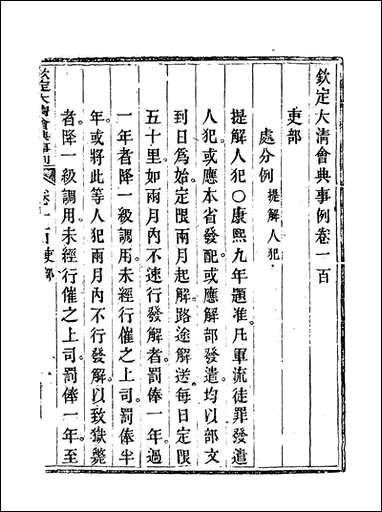 欽定大清會典事例卷一百
吏部
處分例 提解人犯
提解人犯○康熙九年題准凡軍流徒罪發遣
人犯或應本省發配或應解部發遣均以部文
到日爲始定限兩月起解路途解送每日定限
五十里如兩月內不速行發解者罰俸一年過
一年者降一級調用未經行催之上司罰俸半
年或將此等人犯兩月內不行發解以致獄斃
者降一級調用未經行催之上司罰俸一年至
欽定大清會典事例 卷一百 吏部